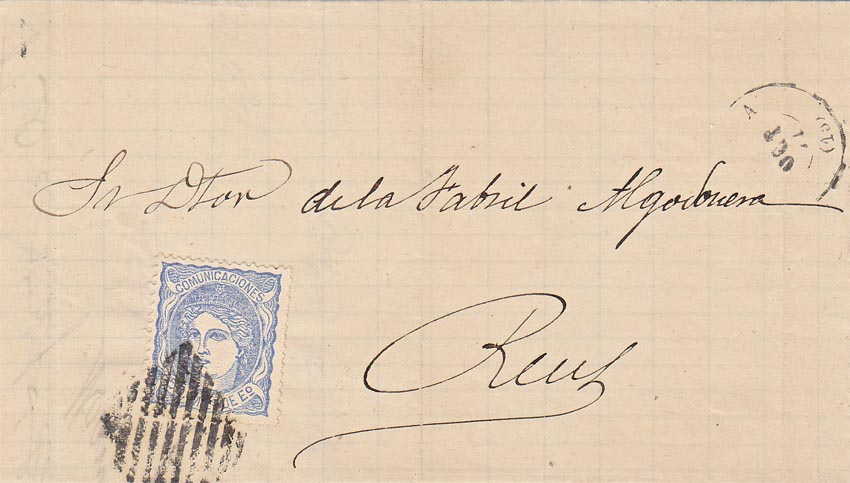 Sr Dtor de la Fabril Algodonera
Reus
COMUNICACIONES
DE Eº
OCT
71
(19)